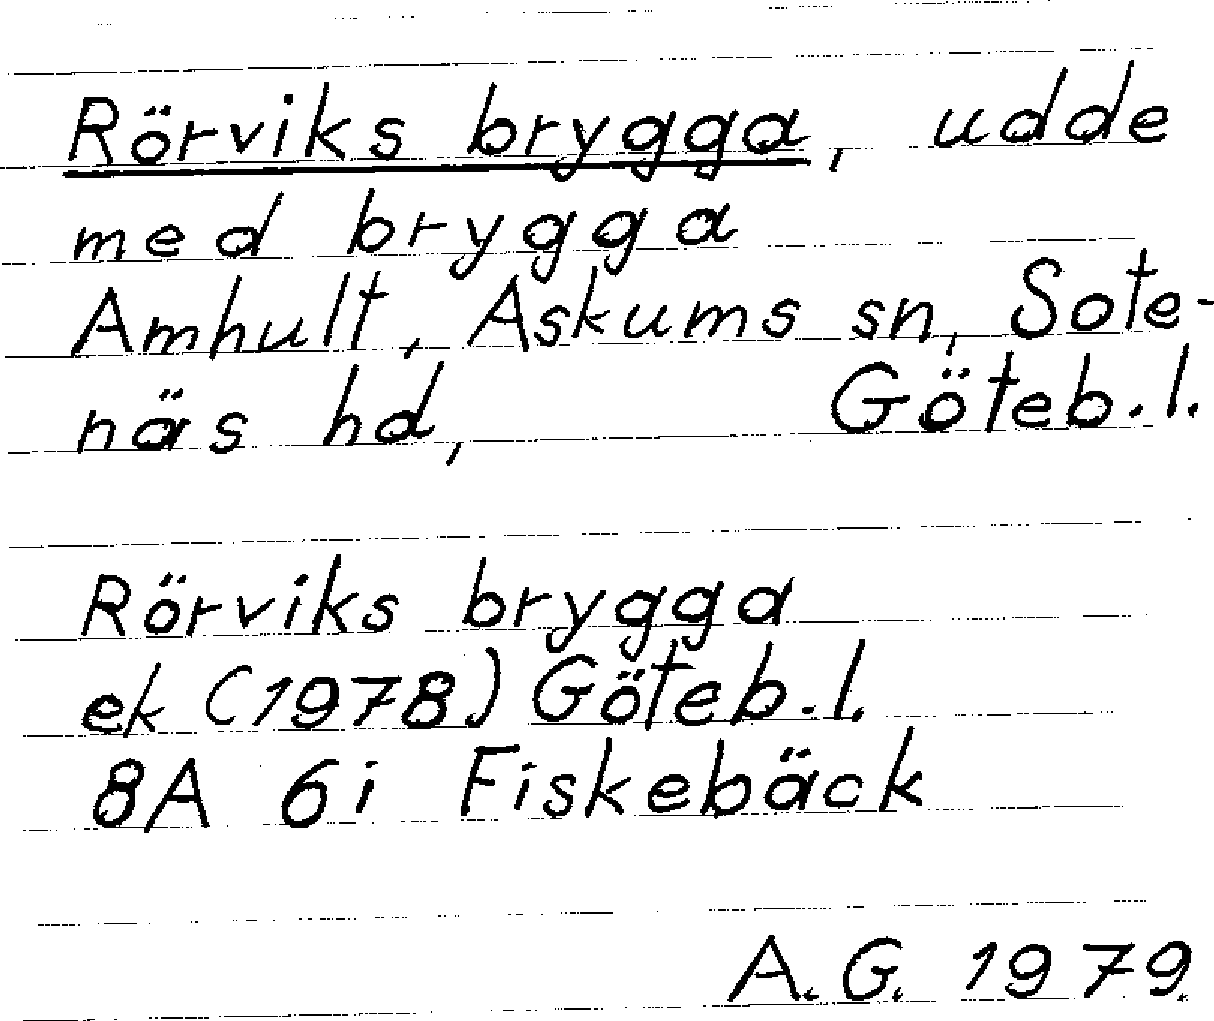 Rörviks brygga, udde
med brygga
Amhult, Askums sn, Sote-
näs hd, Göteb.l.
Rörviks brygga
ek (1978) Göteb.l.
8A 6i Fiskebäck
A.G. 1979.